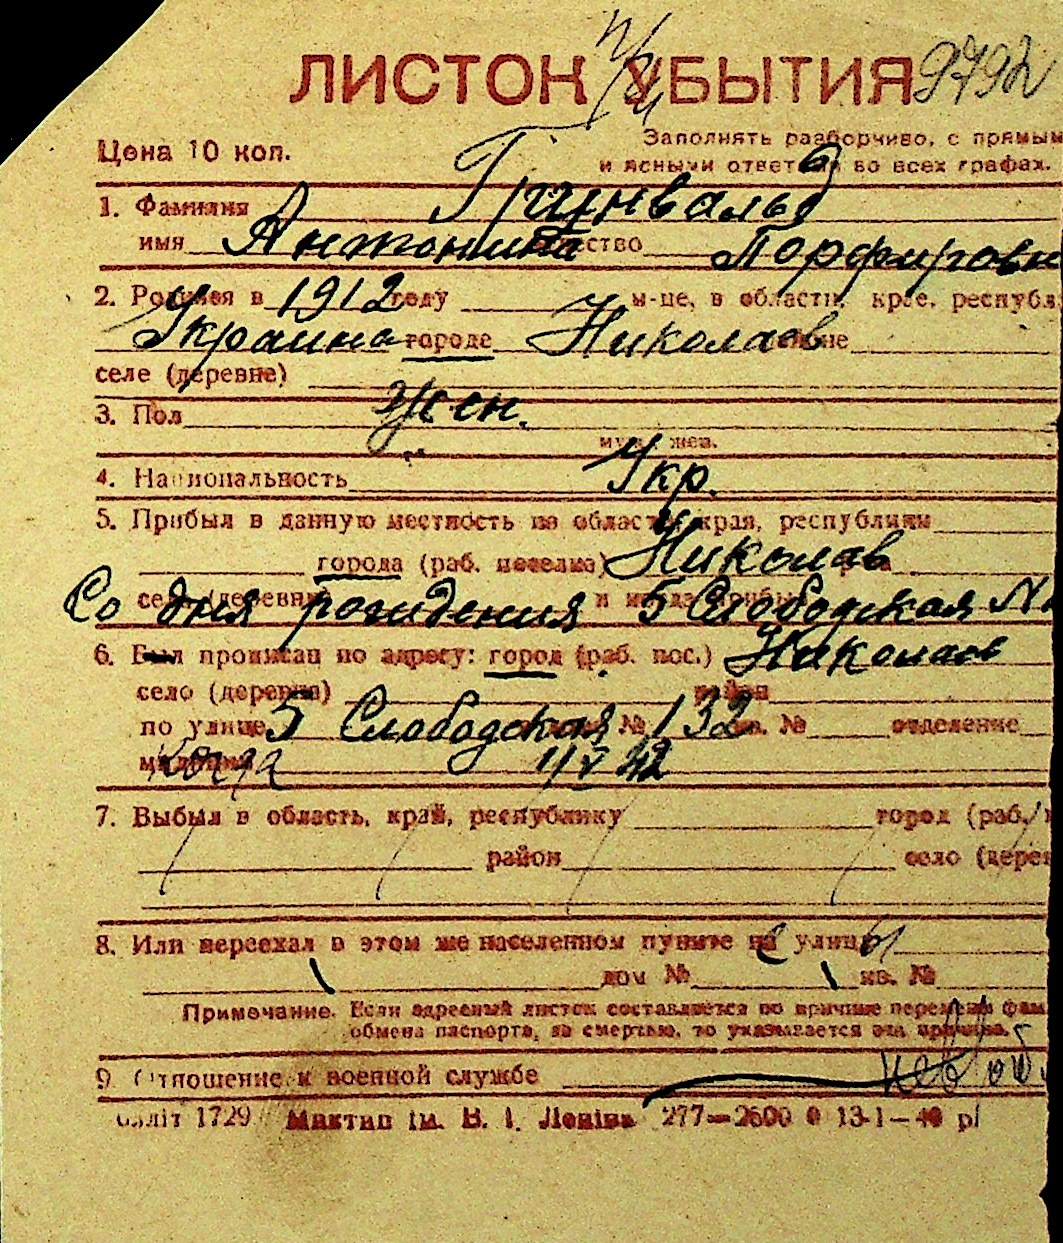 ЛИСТОК УБЫТИЯ 9792
Цена 10 коп.
Заполнять разборчиво, с прямым
и ясными ответами во всех графах.
1. Фамилия Гринвальд
имя Антонина отчество Порфировн
2. Родился в 1912 году м-це, в области, крае, республ
Украина городе Николаев районе
селе (деревне)
3. Пол жен.
муж. жен.
4. Национальность Укр.
5. Прибыл в данную местность из области, края, республики
города (раб. поселка) Николаев
Со дня рождения села (деревни) и когда прибыл 5 Слободская №
6. Был прописан по адресу: город (раб. пос.) Николаев
село (деревня) район
по улице 5 Слободская № 132 кв. № отделение
милиции когда 11/V 42
7. Выбыл в область, край, республику город (раб.
район село (дерев
8. Или переехал в этом же населенном пункте на улицу
дом № кв. №
Примечание. Если адресный листок составляется по причине перемены фам
обмена паспорта, за смертью, то указывается эта причина.
9. Отношение к военной службе невоб
бліт 1729 Миктип ім. В. І. Леніна 277—2600 0 13-1—40 р